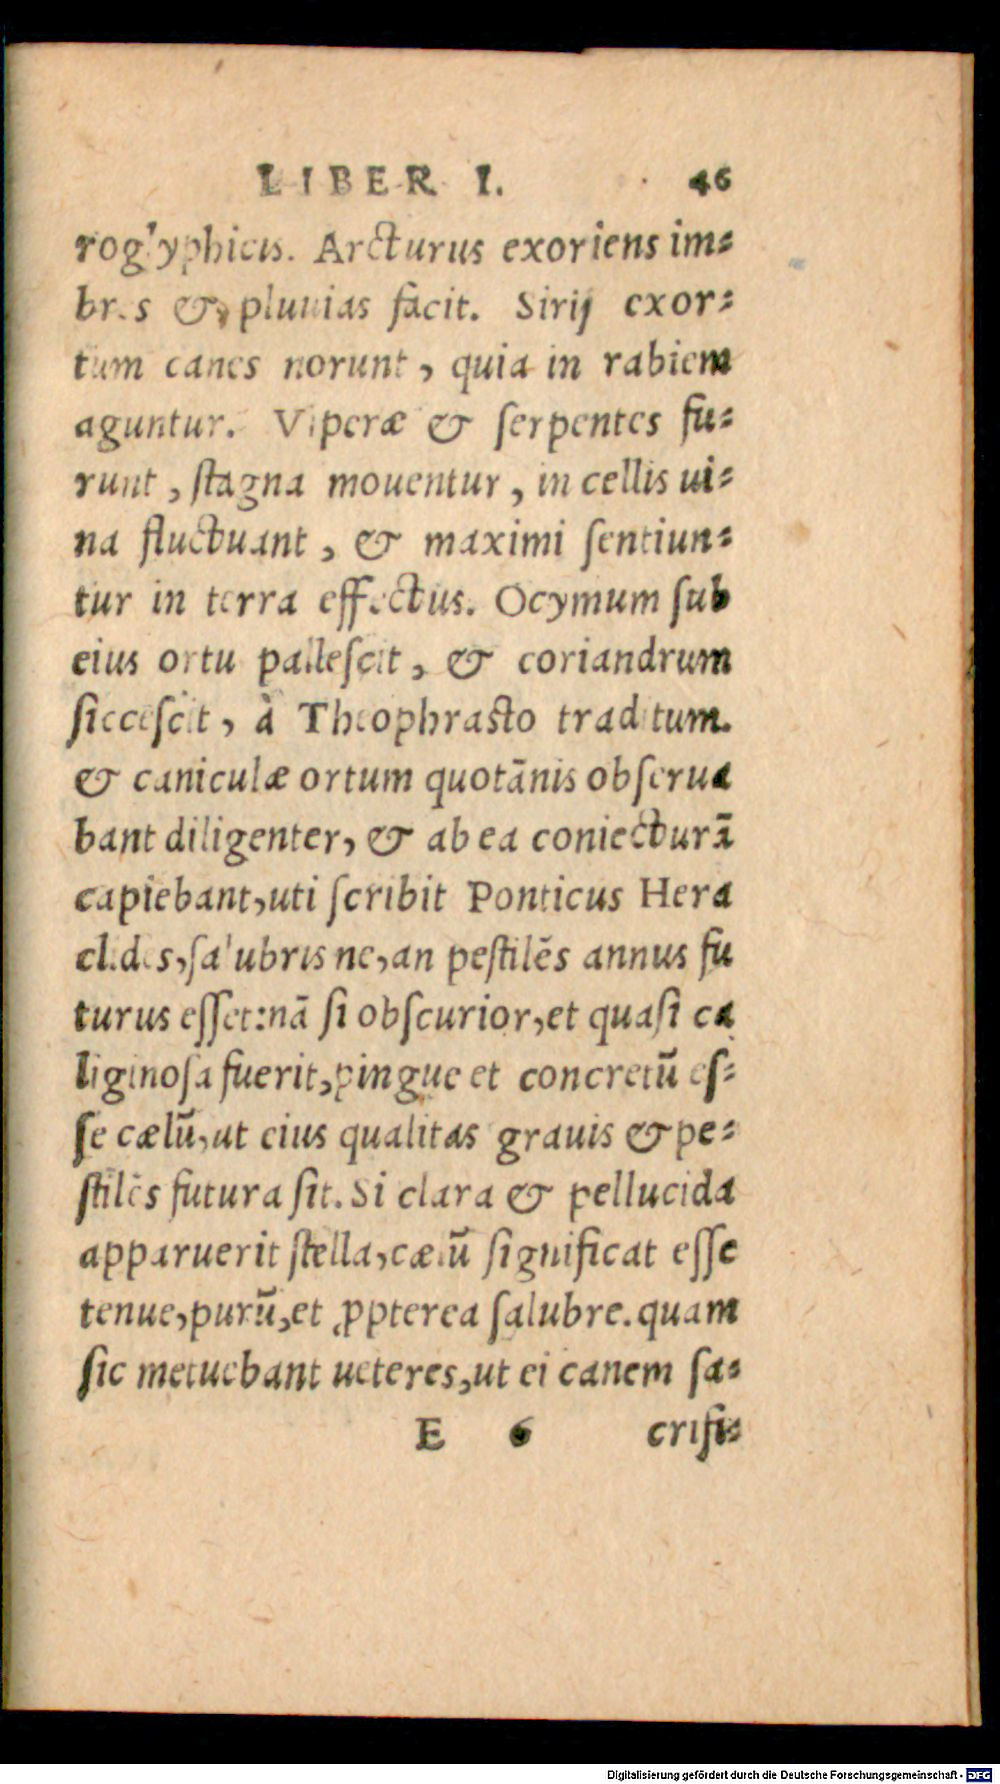 LIBER I. 46
roglyphicis. Arcturus exoriens im-
bres & pluuias facit. Sirij exor-
tum canes norunt, quia in rabiem
aguntur. Viperæ & ſerpentes fu-
runt, ſtagna mouentur, in cellis ui-
na fluctuant, & maximi ſentiun-
tur in terra effectus. Ocymum ſub
eius ortu palleſcit, & coriandrum
ſicceſcit, à Theophraſto traditum.
& caniculæ ortum quotānis obſerua
bant diligenter, & ab ea coniecturā
capiebant, uti ſcribit Ponticus Hera
clides, ſalubris ne, an peſtilēs annus fu
turus eſſet: nā ſi obſcurior, et quaſi ca
liginoſa fuerit, pingue et concretū eſ-
ſe cælū, ut eius qualitas grauis & pe-
ſtilēs futura ſit. Si clara & pellucida
apparuerit ſtella, cælū ſignificat eſſe
tenue, purū, et ꝓpterea ſalubre. quam
ſic metuebant ueteres, ut ei canem ſa-
E 6 crifi-
Digitalisierung gefördert durch die Deutsche Forschungsgemeinschaft - DFG